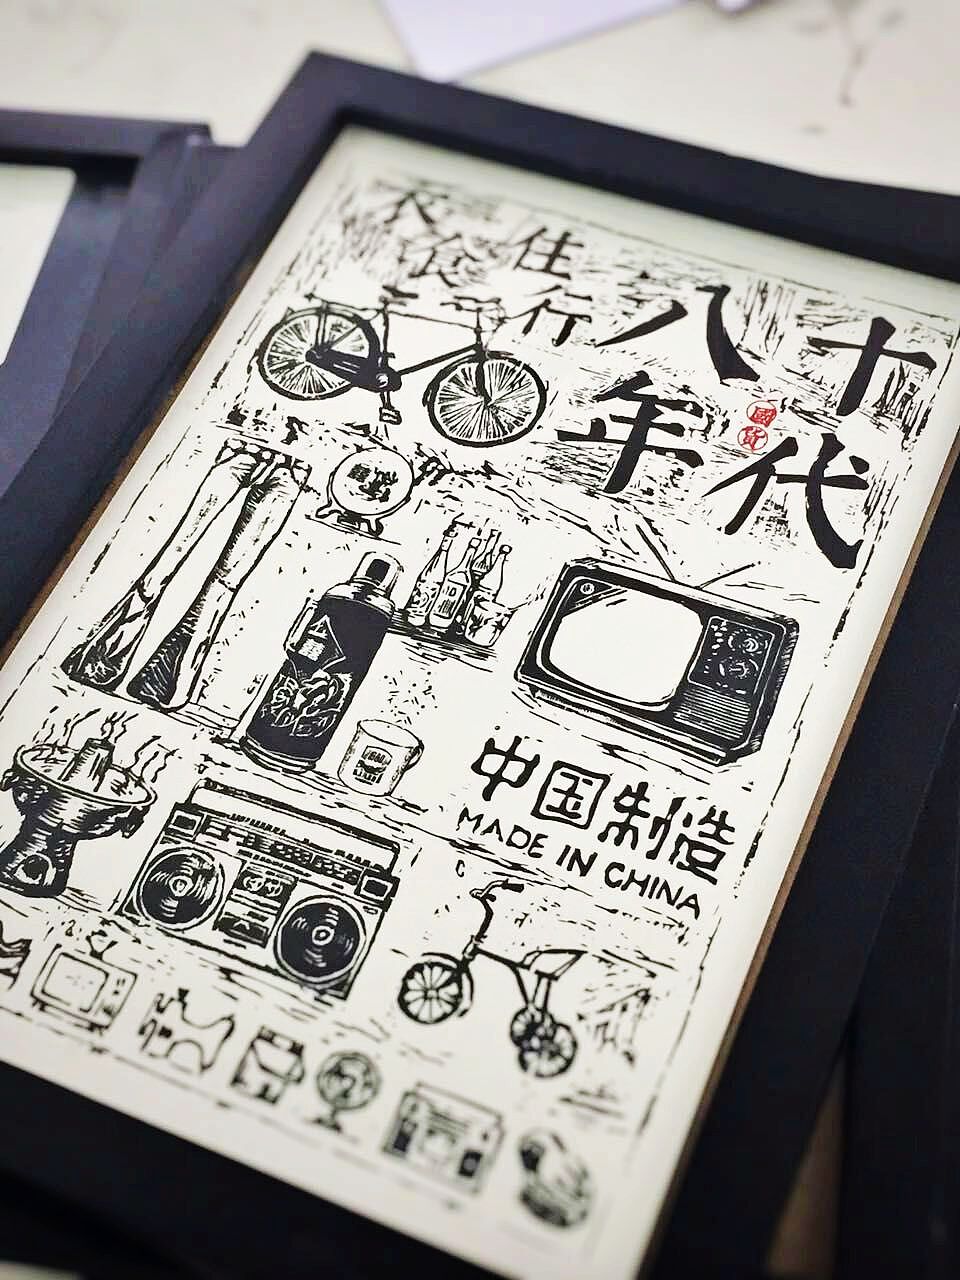 衣食住行
八十
年代
國貨
中国制造
MADE IN CHINA